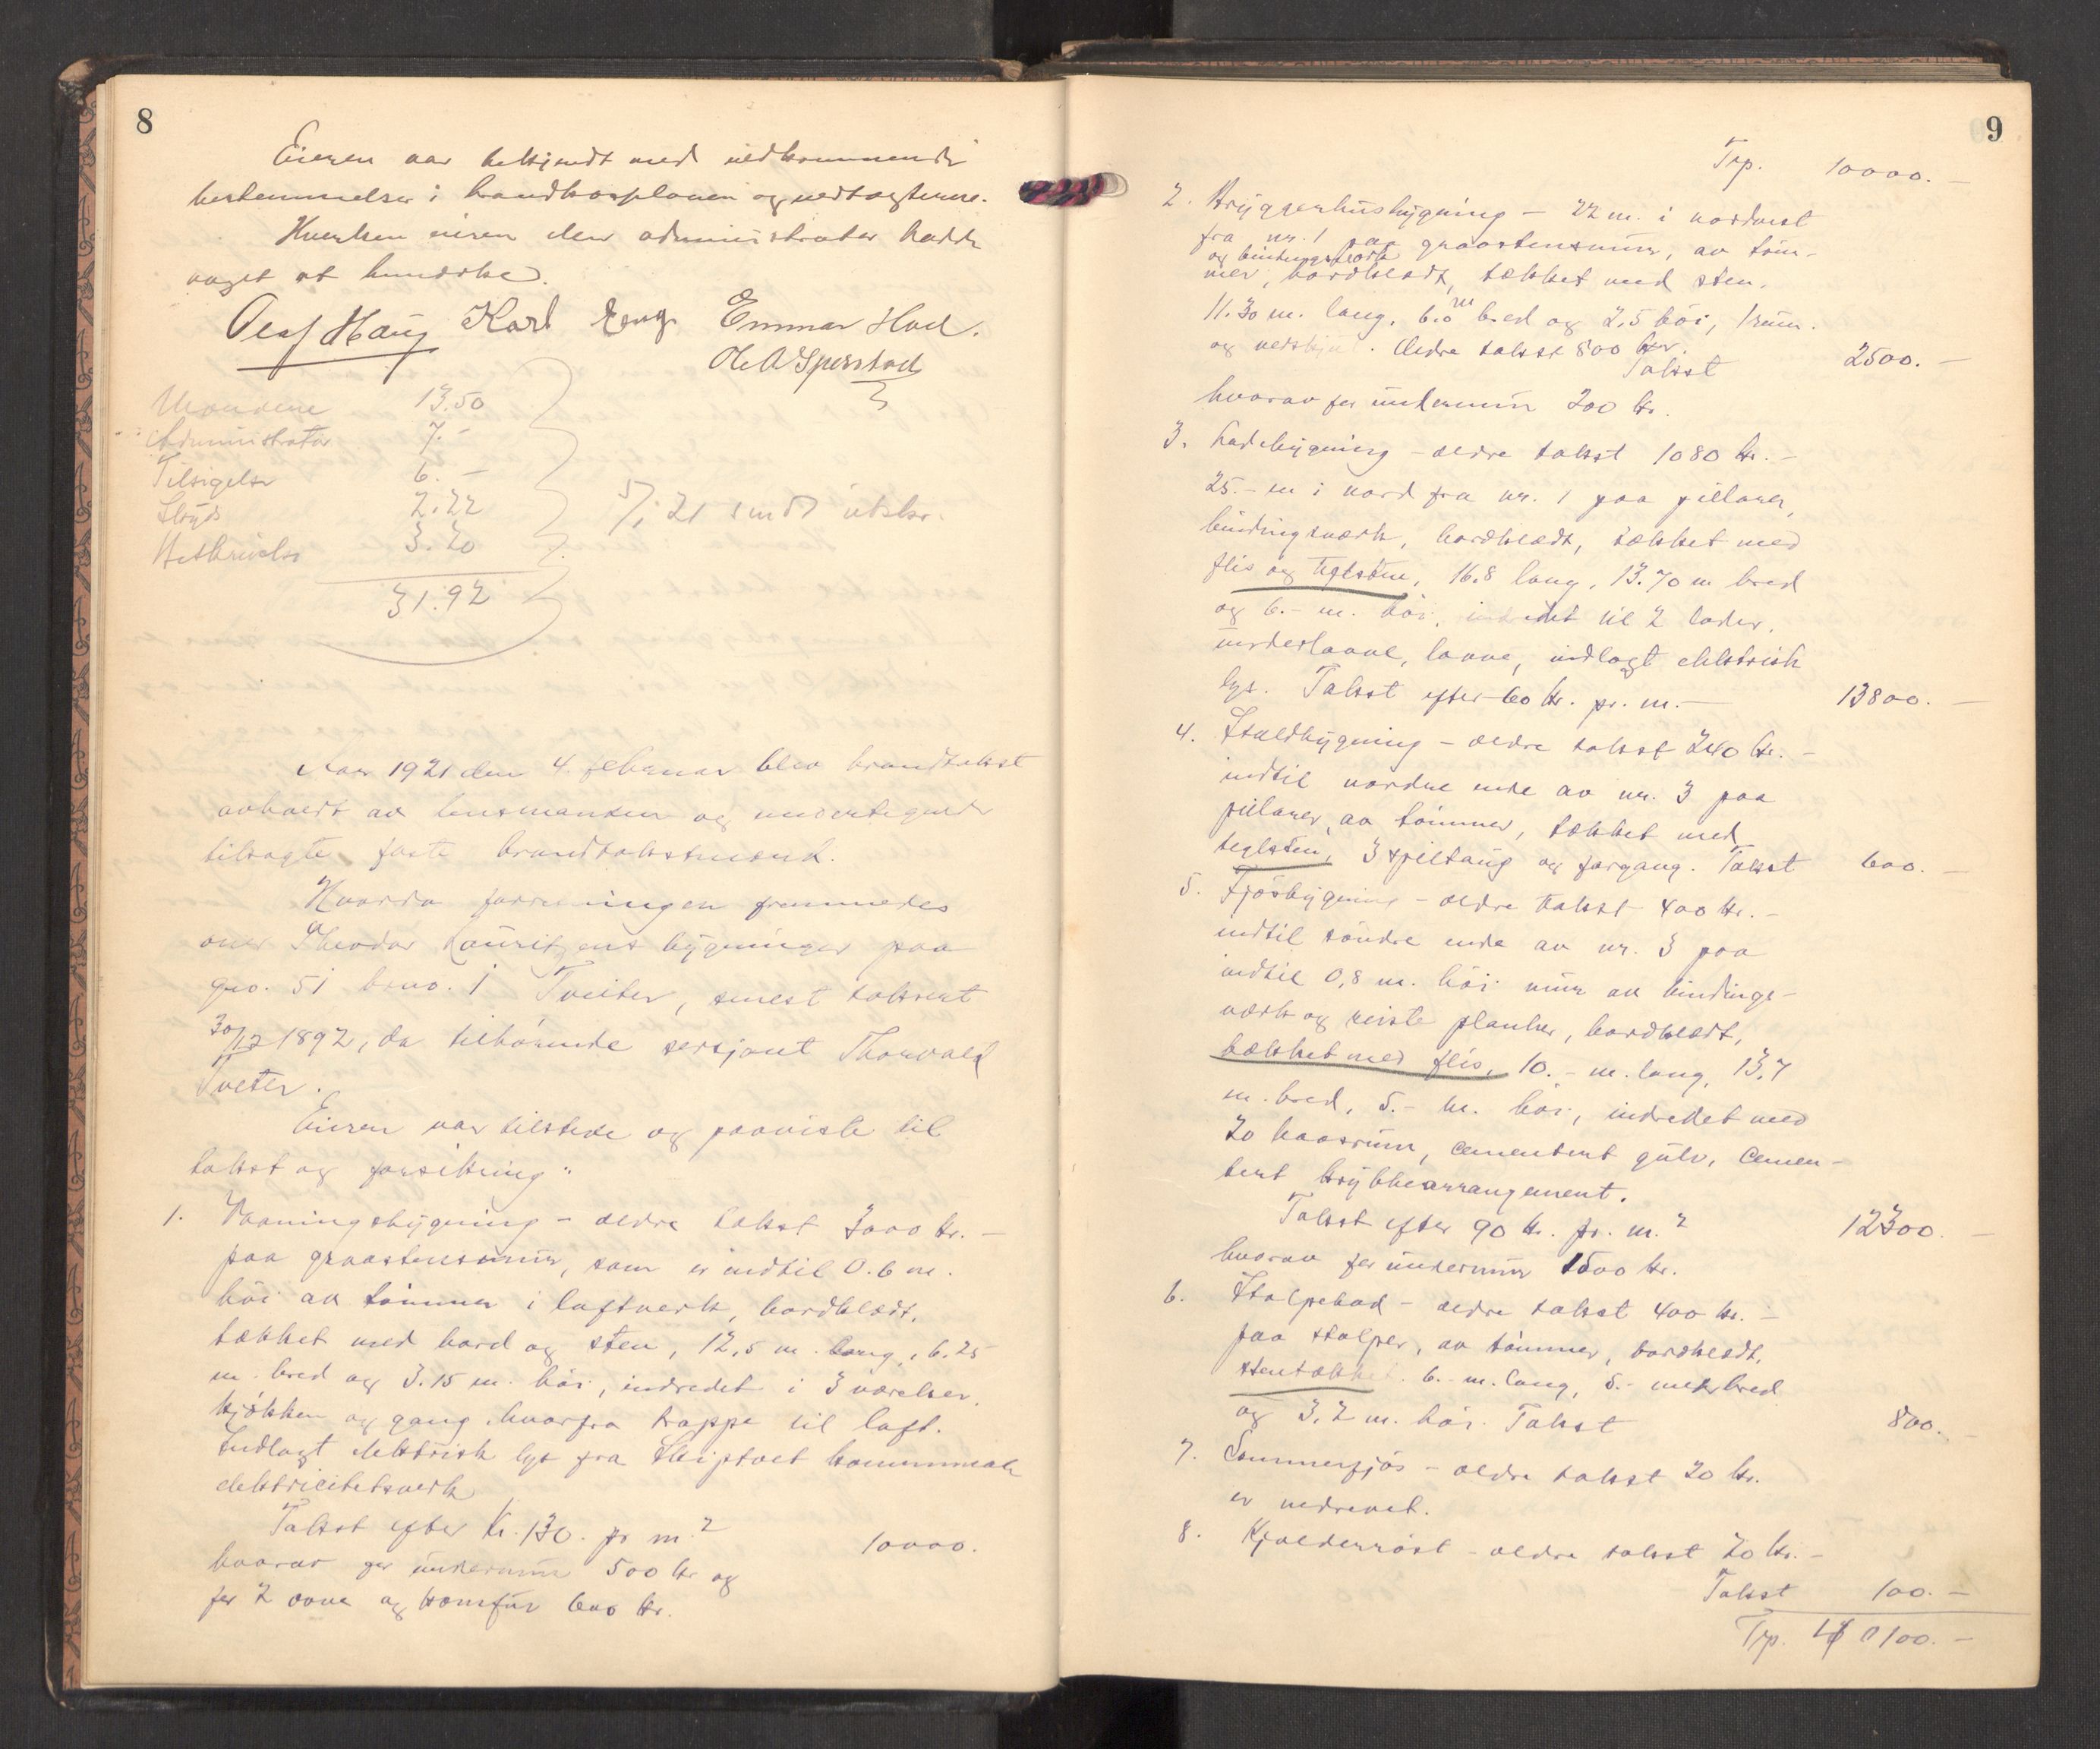 8
Eieren var bekjendt med vedkommende
bestemmelser i brandkasseloven og vedtægterne.
Hverken eieren eller administrator hadde
noget at bemerke.
Olaf Haug Karl Eng Emmar Hoel.
O. A. Sperstad
Mændene 13.50
Administrator 7.-
Tilsigelse 6.-
Skyds 2.22
Beskrivelse 3.20
5/1 21 sendt utskr.
31.92
Aar 1921 den 4. februar blev brandtakst
avholdt av lensmanden og undertegnede
tilsagte faste brandtakstmænd.
Hvorda forretningen fremmedes
over Theodor Lauritzens bygninger paa
gno. 51 brno. 1 Tveiter, senest takseret
30/12 1892, da tilhörende sersjant Thorvald
Tveter.
Eieren var tilstede og paaviste til
takst og forsikring:
1. Vaaningsbygning - ældre takst 3000 kr. -
paa graastensmur, som er indtil 0.6 m.
höi av tömmer i laftverk, bordklædt,
tækket med bord og sten, 12,5 m. lang, 6.25
m. bred og 3.15 m. höi, indredet i 3 værelser,
kjökken og gang hvorfra trappe til loft.
Indlagt elektrisk lys fra Skiptvet kommunale
elektricitetsverk
Takst efter Kr. 130. pr m.2 10000.
hvorav for undermur 500 kr og
for 2 ovne og komfur 600 kr.
9
Trp. 10000. -
2. Bryggerhusbygning - 22 m. i nordvest
fra nr. 1 paa graastensmur, av töm-
og bindingsverk
mer, bordklædt, tækket med sten.
11.30 m. lang, 6.0 m bred og 2,5 höi, 1 rum.
og vedskjul. Ældre takst 800 kr.
Takst 2500. -
hvorav for undermur 200 kr.
3. Ladebygning - ældre takst 1080 kr. -
25.- m i nord fra nr. 1 paa pillarer,
bindingsværk, bordklædt, tækket med
flis og teglsten, 16,8 lang, 13.70 m bred
og 6.- m. höi, indredet til 2 lader,
underlaave, laave, indlagt elektrisk
lys. Takst efter 60 kr. pr. m. - 13800. -
4. Staldbygning - ældre takst 240 kr. -
indtil nordre ende av nr. 3 paa
pillarer, av tömmer, tækket med
teglsten, 3 spiltaug og forgang. Takst 600. -
5. Fjösbygning - ældre takst 400 kr. -
indtil söndre ende av nr. 3 paa
indtil 0,8 m. höi mur av bindings-
værk og reiste planker, bordklædt,
tækket med flis, 10.- m. lang, 13,7
m. bred, 5.- m. höi, indredet med
20 baasrum, cementert gulv, cemen-
tert krybbearrangement.
Takst efter 90 kr. pr. m.2 12300. -
hvorav for undermur 1500 kr.
6. Stolpebod - ældre takst 400 kr. -
paa stolper, av tömmer, bordklædt,
stentækket. 6.- m. lang, 5.- meter bred
og 3,2 m. höi. Takst 800. -
7. Sommerfjös - ældre takst 20 kr.
er nedrevet.
8. Kjælderröst - ældre takst 20 kr. -
Takst 100. -
Trp. 40100. -